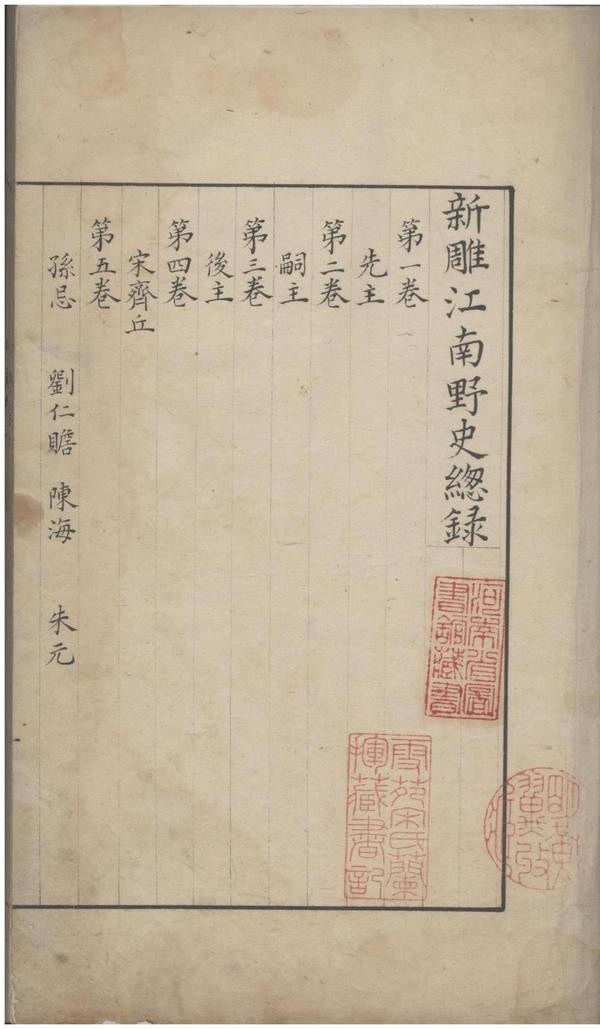 新雕江南野史緫録
第一卷
先主
第二卷
嗣主
第三卷
後主
第四卷
宋齊丘
第五卷
孫忌 劉仁贍 陳海 朱元
河南省圖
書館藏書
雪苑宋氏蘭
揮藏書記